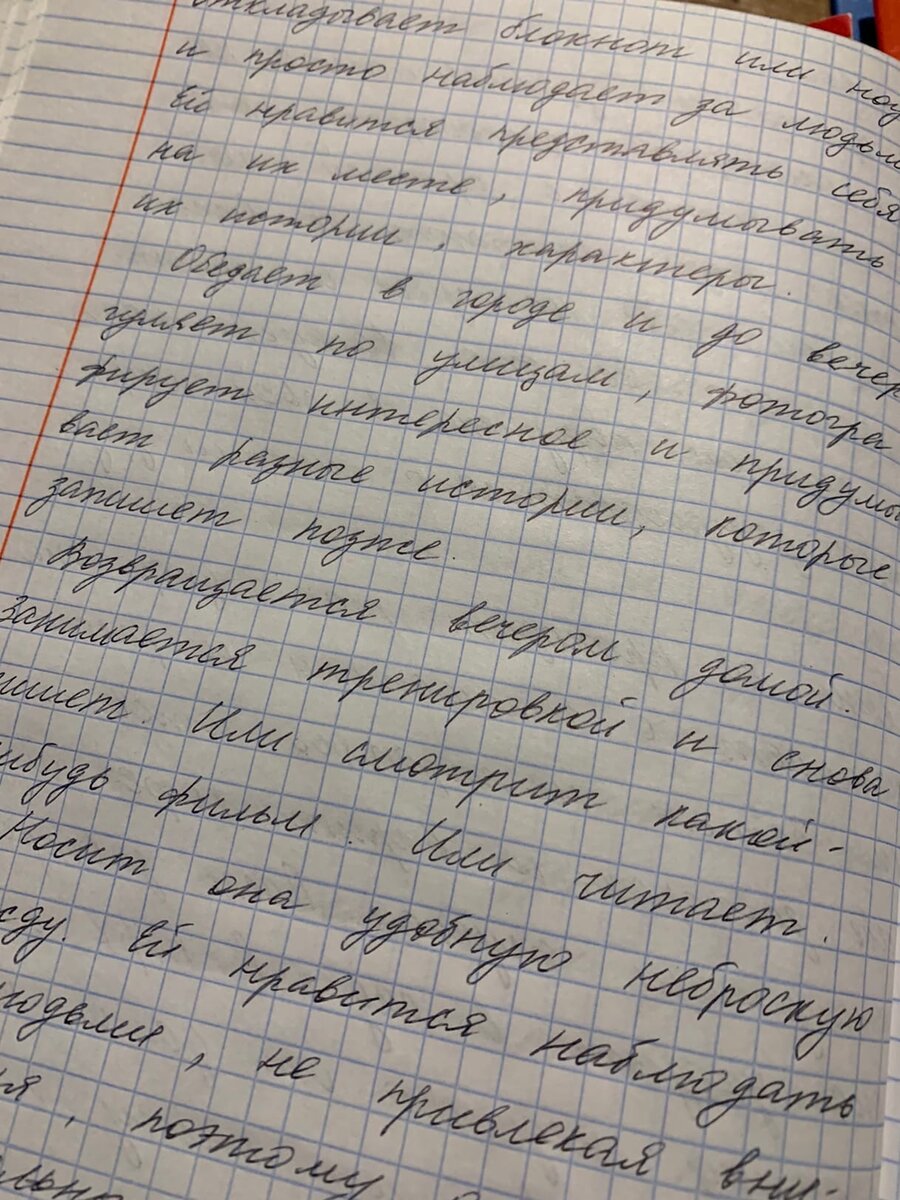 откладывает блокнот или ноу
и просто наблюдает за людьм
Ей нравится представлять себя
на их месте, придумывать
их истории, характеры.
Обедает в городе и до вечер
гуляет по улицам, фотогра
фирует интересное и придумы
вает разные истории, которые
запишет позже.
Возвращается вечером домой.
Занимается тренировкой и снова
пишет. Или смотрит какой-
нибудь фильм. Или читает.
Носит она удобную неброскую
жду. Ей нравится наблюдать
людьми, не привлекая вни-
ия, поэтому
льно